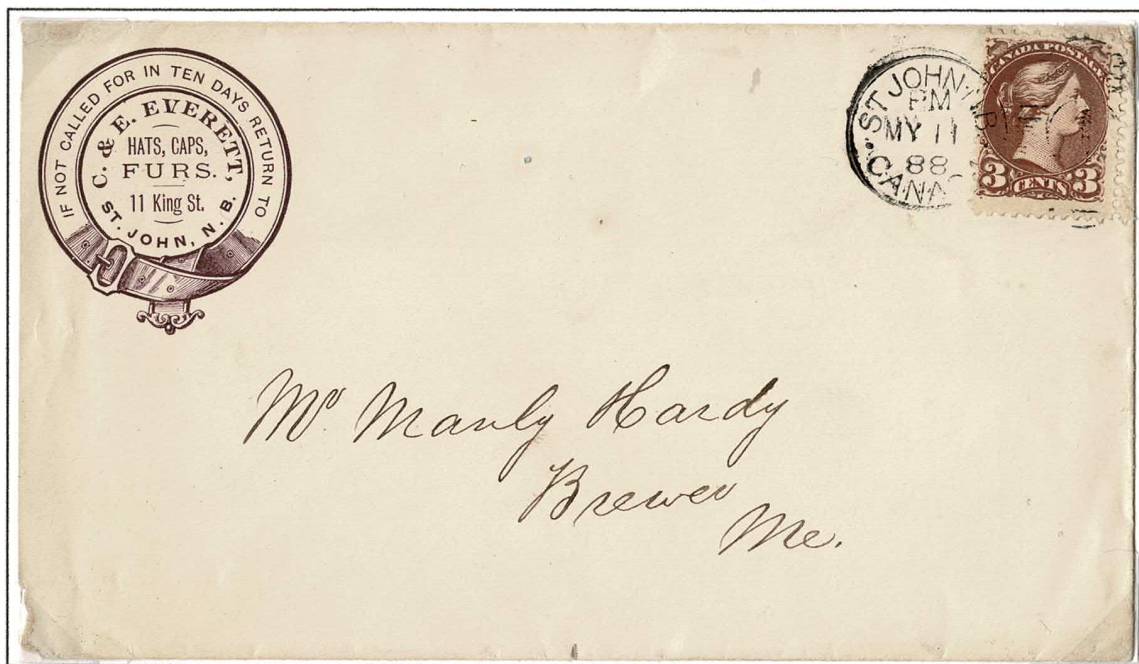 IF NOT CALLED FOR IN TEN DAYS RETURN TO
C. & E. EVERETT,
HATS, CAPS,
FURS.
11 King St.
ST. JOHN, N. B.
ST JOHN N.B
PM
MY 11
88
CANA
CANADA POSTAGE
3 CENTS 3
Mr Manly Hardy
Brewer
Me.